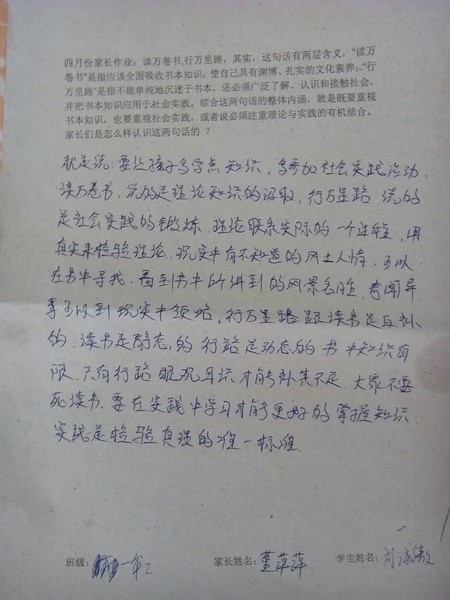 四月份家长作业：读万卷书,行万里路，其实，这句话有两层含义，“读万
卷书”是指应该全面吸收书本知识，使自己具有渊博、扎实的文化素养；“行
万里路”是指不能单纯地沉迷于书本，还必须广泛了解、认识和接触社会，
并把书本知识应用于社会实践，综合这两句话的整体内涵，就是既要重视
书本知识，也要重视社会实践，或者说必须注重理论与实践的有机结合。
家长们是怎么样认识这两句话的？
就是说：要让孩子多学点知识，多参加社会实践活动，
读万卷书，说的是理论知识的汲取，行万里路 说的
是社会实践的锻炼 理论联系实际的一个过程，用
真实来检验理论，现实中有不知道的风土人情，可以
在书中寻找，看到书中所讲到的风景名胜，奇闻异
事可以到现实中领略，行万里路跟读书是互补
的，读书是静态的 行路是动态的 书本知识有
限，只有行路 眼观耳识才能补其不足，大家不要
死读书，要在实践中学习才能更好的掌握知识
实践是检验真理的唯一标准
班级： 一年二
家长姓名：董萍萍
学生姓名：刘